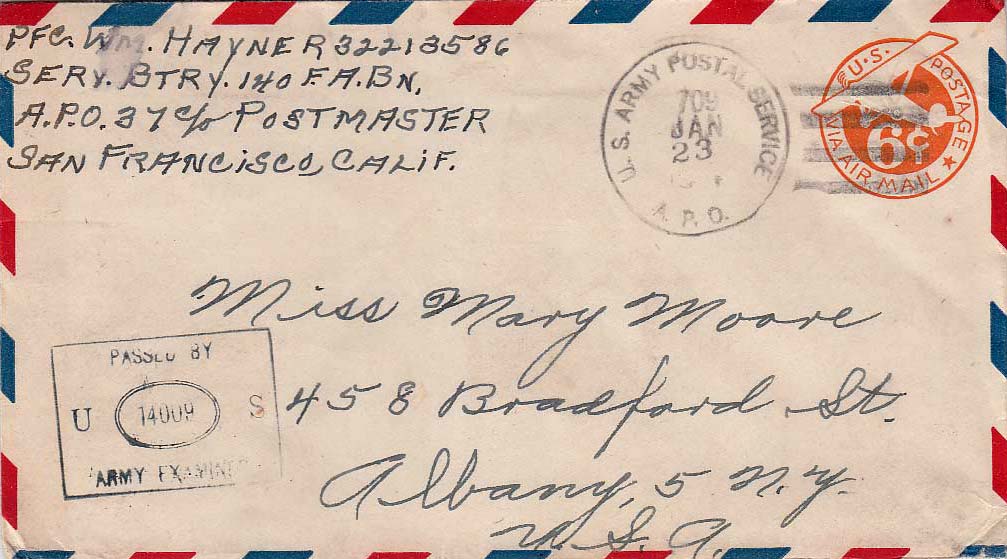 PFC. Wm. HAYNER 32213586
SERV. BTRY. 140 F.A. BN,
A.P.O. 37 c/o POSTMASTER
SAN FRANCISCO, CALIF.
U. S. ARMY POSTAL SERVICE
709
JAN
23
A. P. O.
U.S. POSTAGE
6¢
VIA AIR MAIL
Miss Mary Moore
458 Bradford St.
Albany, 5 N.Y.
U.S.A.
PASSED BY
U 14009 S
ARMY EXAMINER